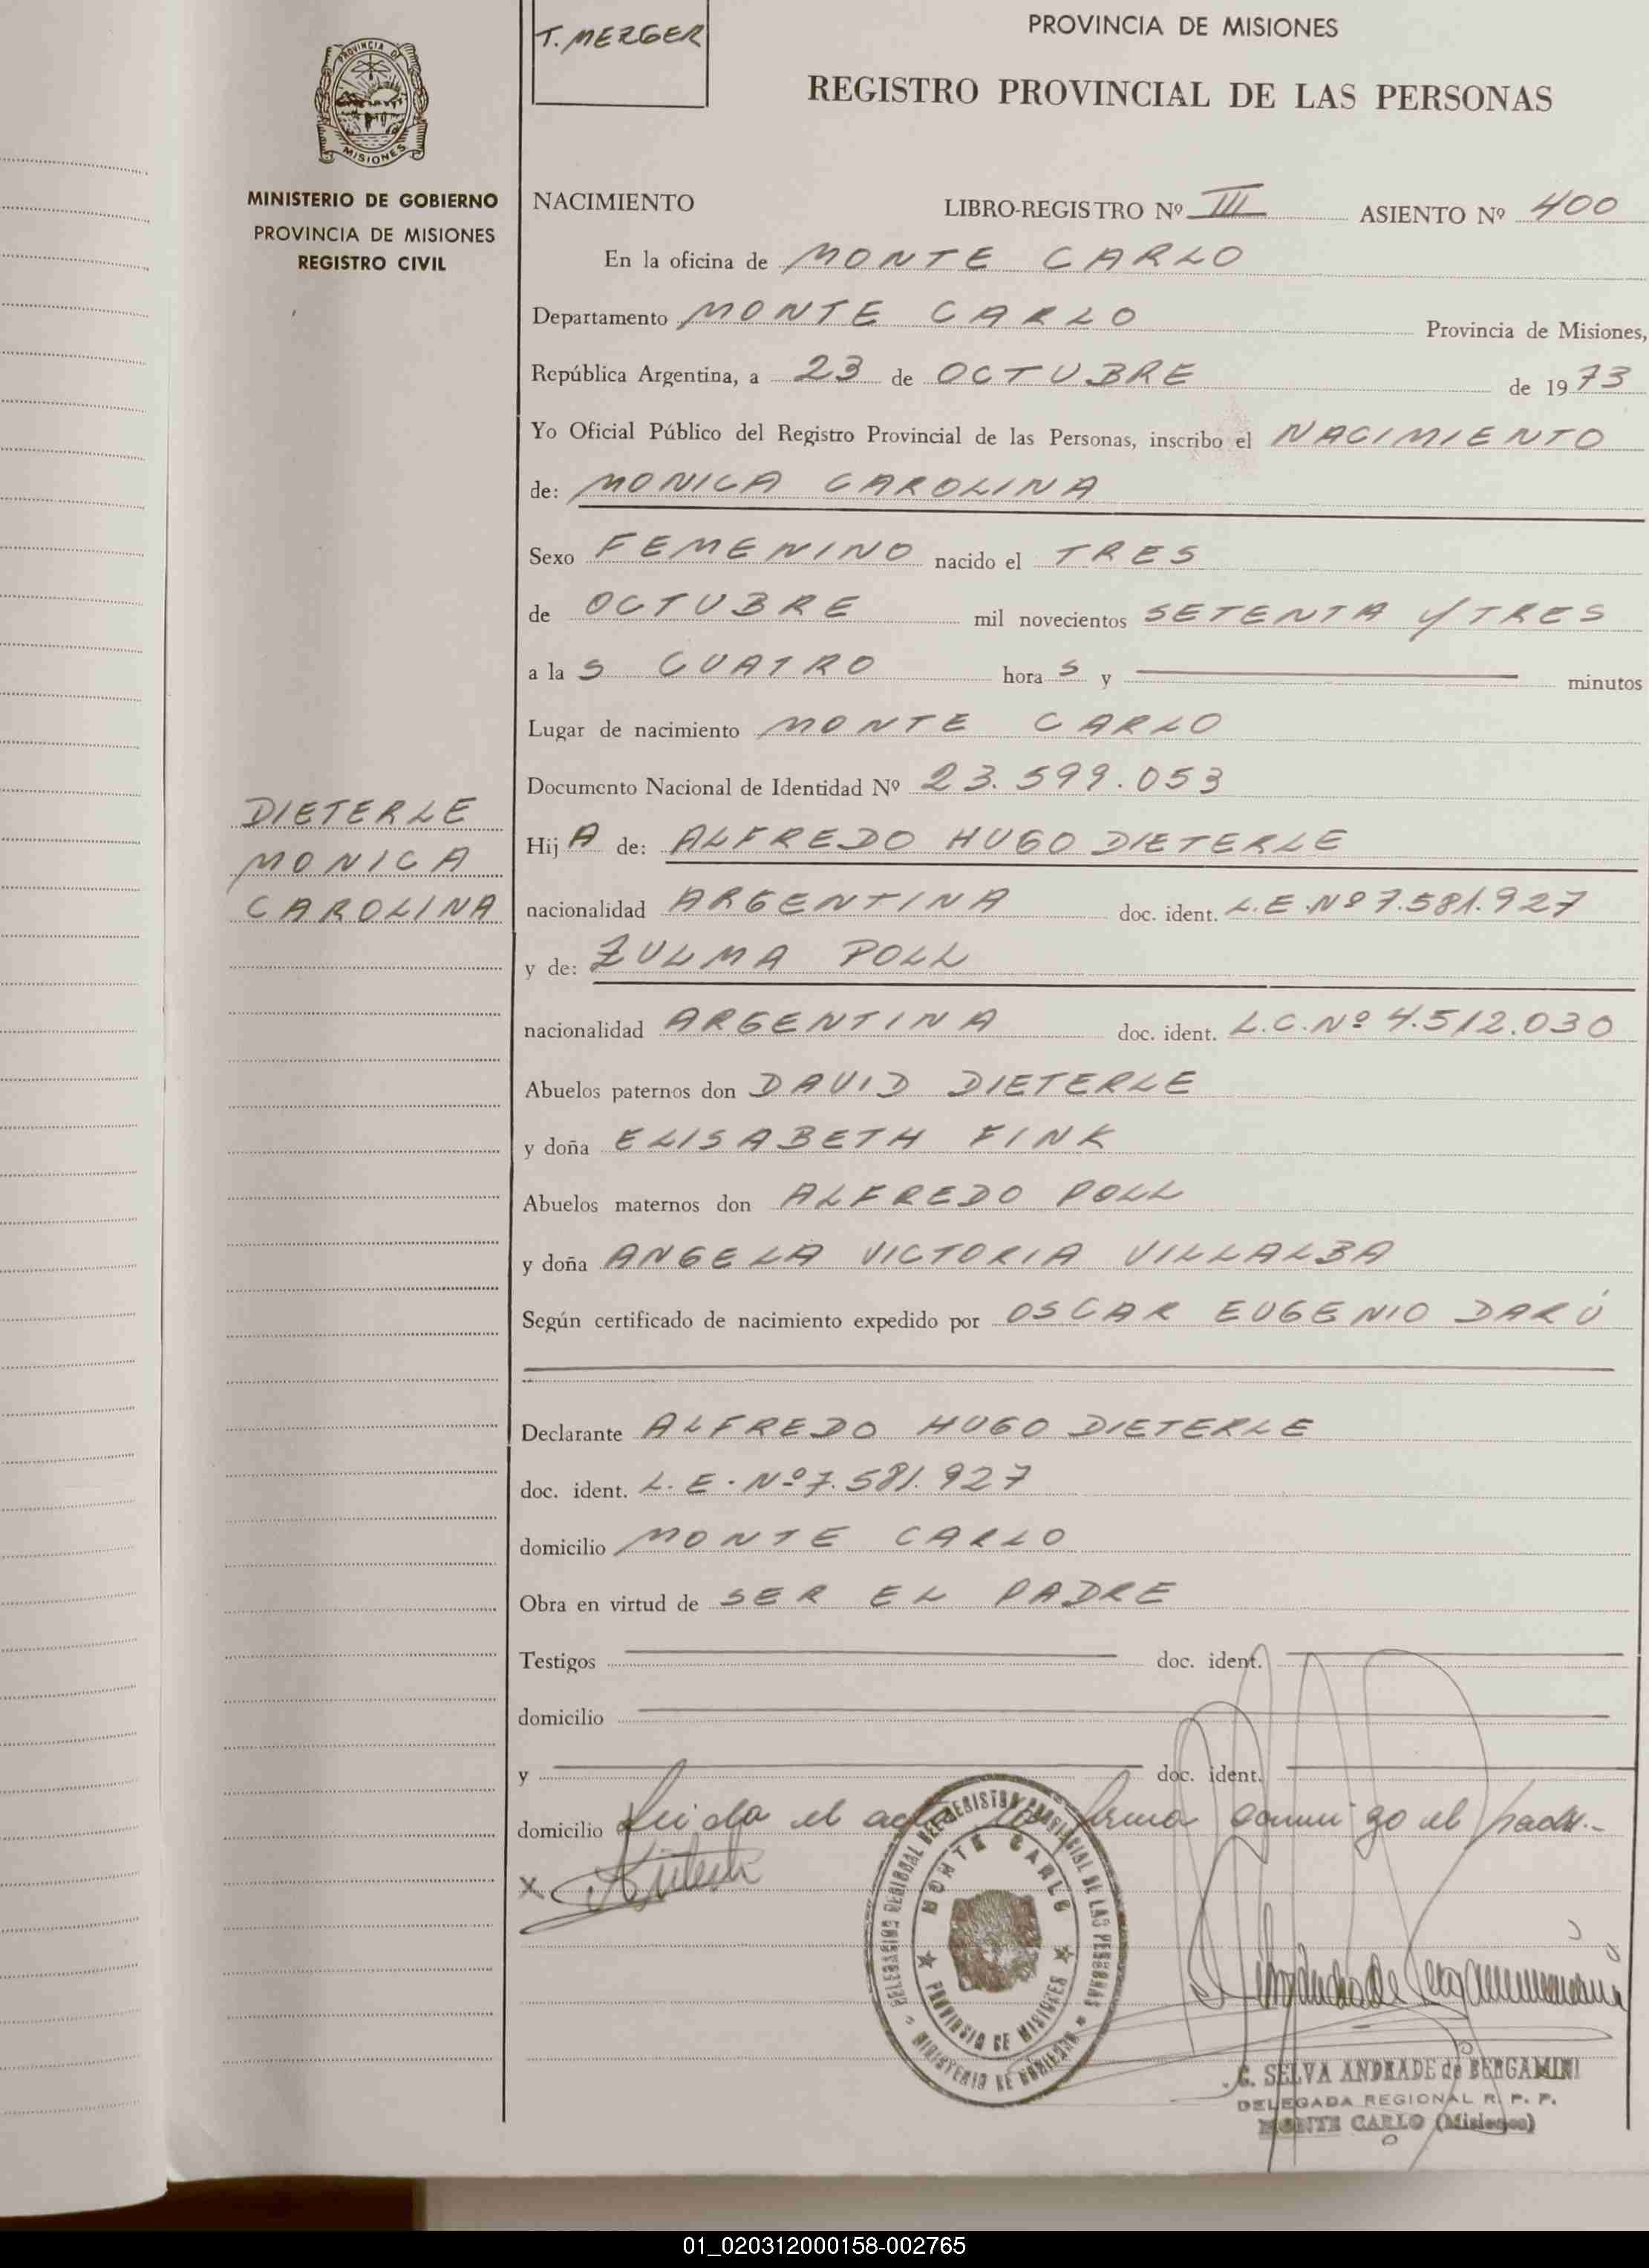 T. MERGER
PROVINCIA DE MISIONES
REGISTRO PROVINCIAL DE LAS PERSONAS
PROVINCIA DE
MISIONES
MINISTERIO DE GOBIERNO
PROVINCIA DE MISIONES
REGISTRO CIVIL
NACIMIENTO LIBRO-REGISTRO Nº III ASIENTO Nº 400
En la oficina de MONTE CARLO
Departamento MONTE CARLO Provincia de Misiones,
República Argentina, a 23 de OCTUBRE de 1973
Yo Oficial Público del Registro Provincial de las Personas, inscribo el NACIMIENTO
de: MONICA CAROLINA
Sexo FEMENINO nacido el TRES
de OCTUBRE mil novecientos SETENTA Y TRES
a la S CUATRO hora S y minutos
Lugar de nacimiento MONTE CARLO
Documento Nacional de Identidad Nº 23.599.053
DIETERLE
MONICA
CAROLINA
Hij A de: ALFREDO HUGO DIETERLE
nacionalidad ARGENTINA doc. ident. L.E Nº 7.581.927
y de: ZULMA POLL
nacionalidad ARGENTINA doc. ident. L.C. Nº 4.512.030
Abuelos paternos don DAVID DIETERLE
y doña ELISABETH FINK
Abuelos maternos don ALFREDO POLL
y doña ANGELA VICTORIA VILLALBA
Según certificado de nacimiento expedido por OSCAR EUGENIO DARÚ
Declarante ALFREDO HUGO DIETERLE
doc. ident. L.E. Nº 7.581.927
domicilio MONTE CARLO
Obra en virtud de SER EL PADRE
Testigos doc. ident.
domicilio
y doc. ident.
domicilio Leida el acta la firma conmigo el padre.-
X
DELEGACION REGIONAL DEL REGISTRO PROVINCIAL DE LAS PERSONAS
MINISTERIO DE GOBIERNO
MONTE CARLO
PROVINCIA DE MISIONES
G. SELVA ANDRADE de BERGAMINI
DELEGADA REGIONAL R. P. P.
MONTE CARLO (Misiones)
01_020312000158-002765